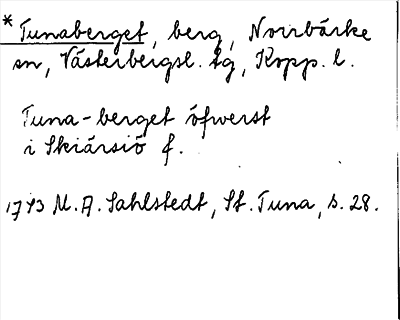 * Tunaberget, berg, Norrbärke
sn, Västerbergsl. tg, Kopp. l.
Tuna-berget öfwerst
i Skiärsiö f.
1793 M. A. Sahlstedt, St. Tuna, s. 28.